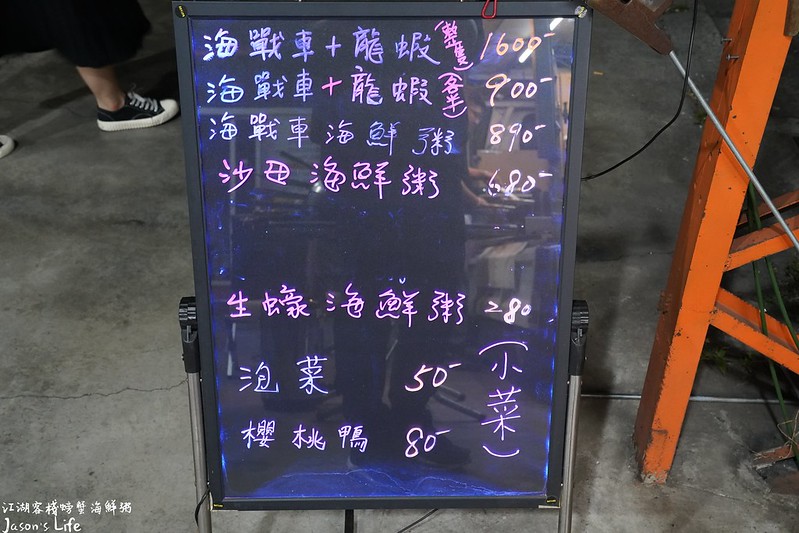 海戰車+龍蝦(整隻) 1600-
海戰車+龍蝦(半) 900-
海戰車海鮮粥 890-
沙母海鮮粥 680-
生蠔海鮮粥 280
泡菜 50-
(小菜)
櫻桃鴨 80-
江湖客棧螃蟹海鮮粥
Jason's Life